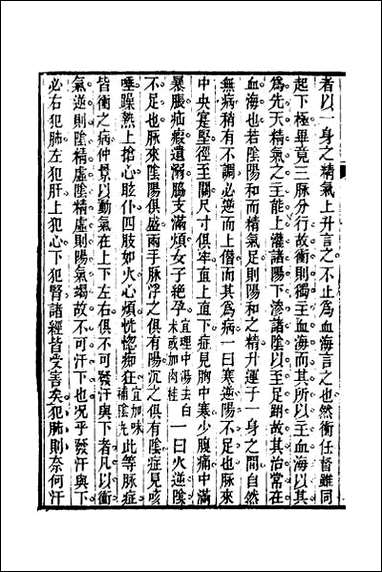 者以一身之精氣上升言之不止爲血海言之也然衝任督雖同
起下極畢竟三脈分行故衝則獨主血海而其所以主血海以其
爲先天精氣之主能上灌諸陽下滲諸陰以至足跗故其治常在
血海也若陰陽和而精氣足則陽和之精升運于一身之間自然
無病稍有不調必逆而上僭而其爲病一曰寒逆陽不足也脈來
中央寔堅徑至關尺寸俱牢直上直下症見胸中寒少腹痛中滿
暴脹疝瘕遺溺脇支滿煩女子絶孕宜理中湯去白朮或加肉桂一曰火逆陰
不足也脈來陰陽俱盛兩手脈浮之俱有陽沉之俱有陰症見咳
唾躁熱上搶心眩仆四肢如火心煩恍惚痴狂宜加味補陰丸此等脈症
皆衝之病仲景以動氣在上下左右俱不可發汗與下者凡以衝
氣逆則陰精虛陰精虛則陽氣竭故不可汗下也况乎發汗與下
必右犯肺左犯肝上犯心下犯腎諸經皆受害矣犯肺則奈何汗